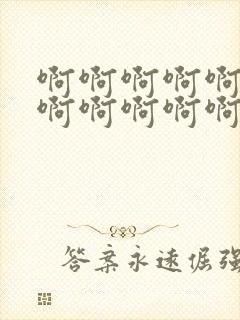 啊啊啊啊啊
啊啊啊啊啊
答案永远倔强